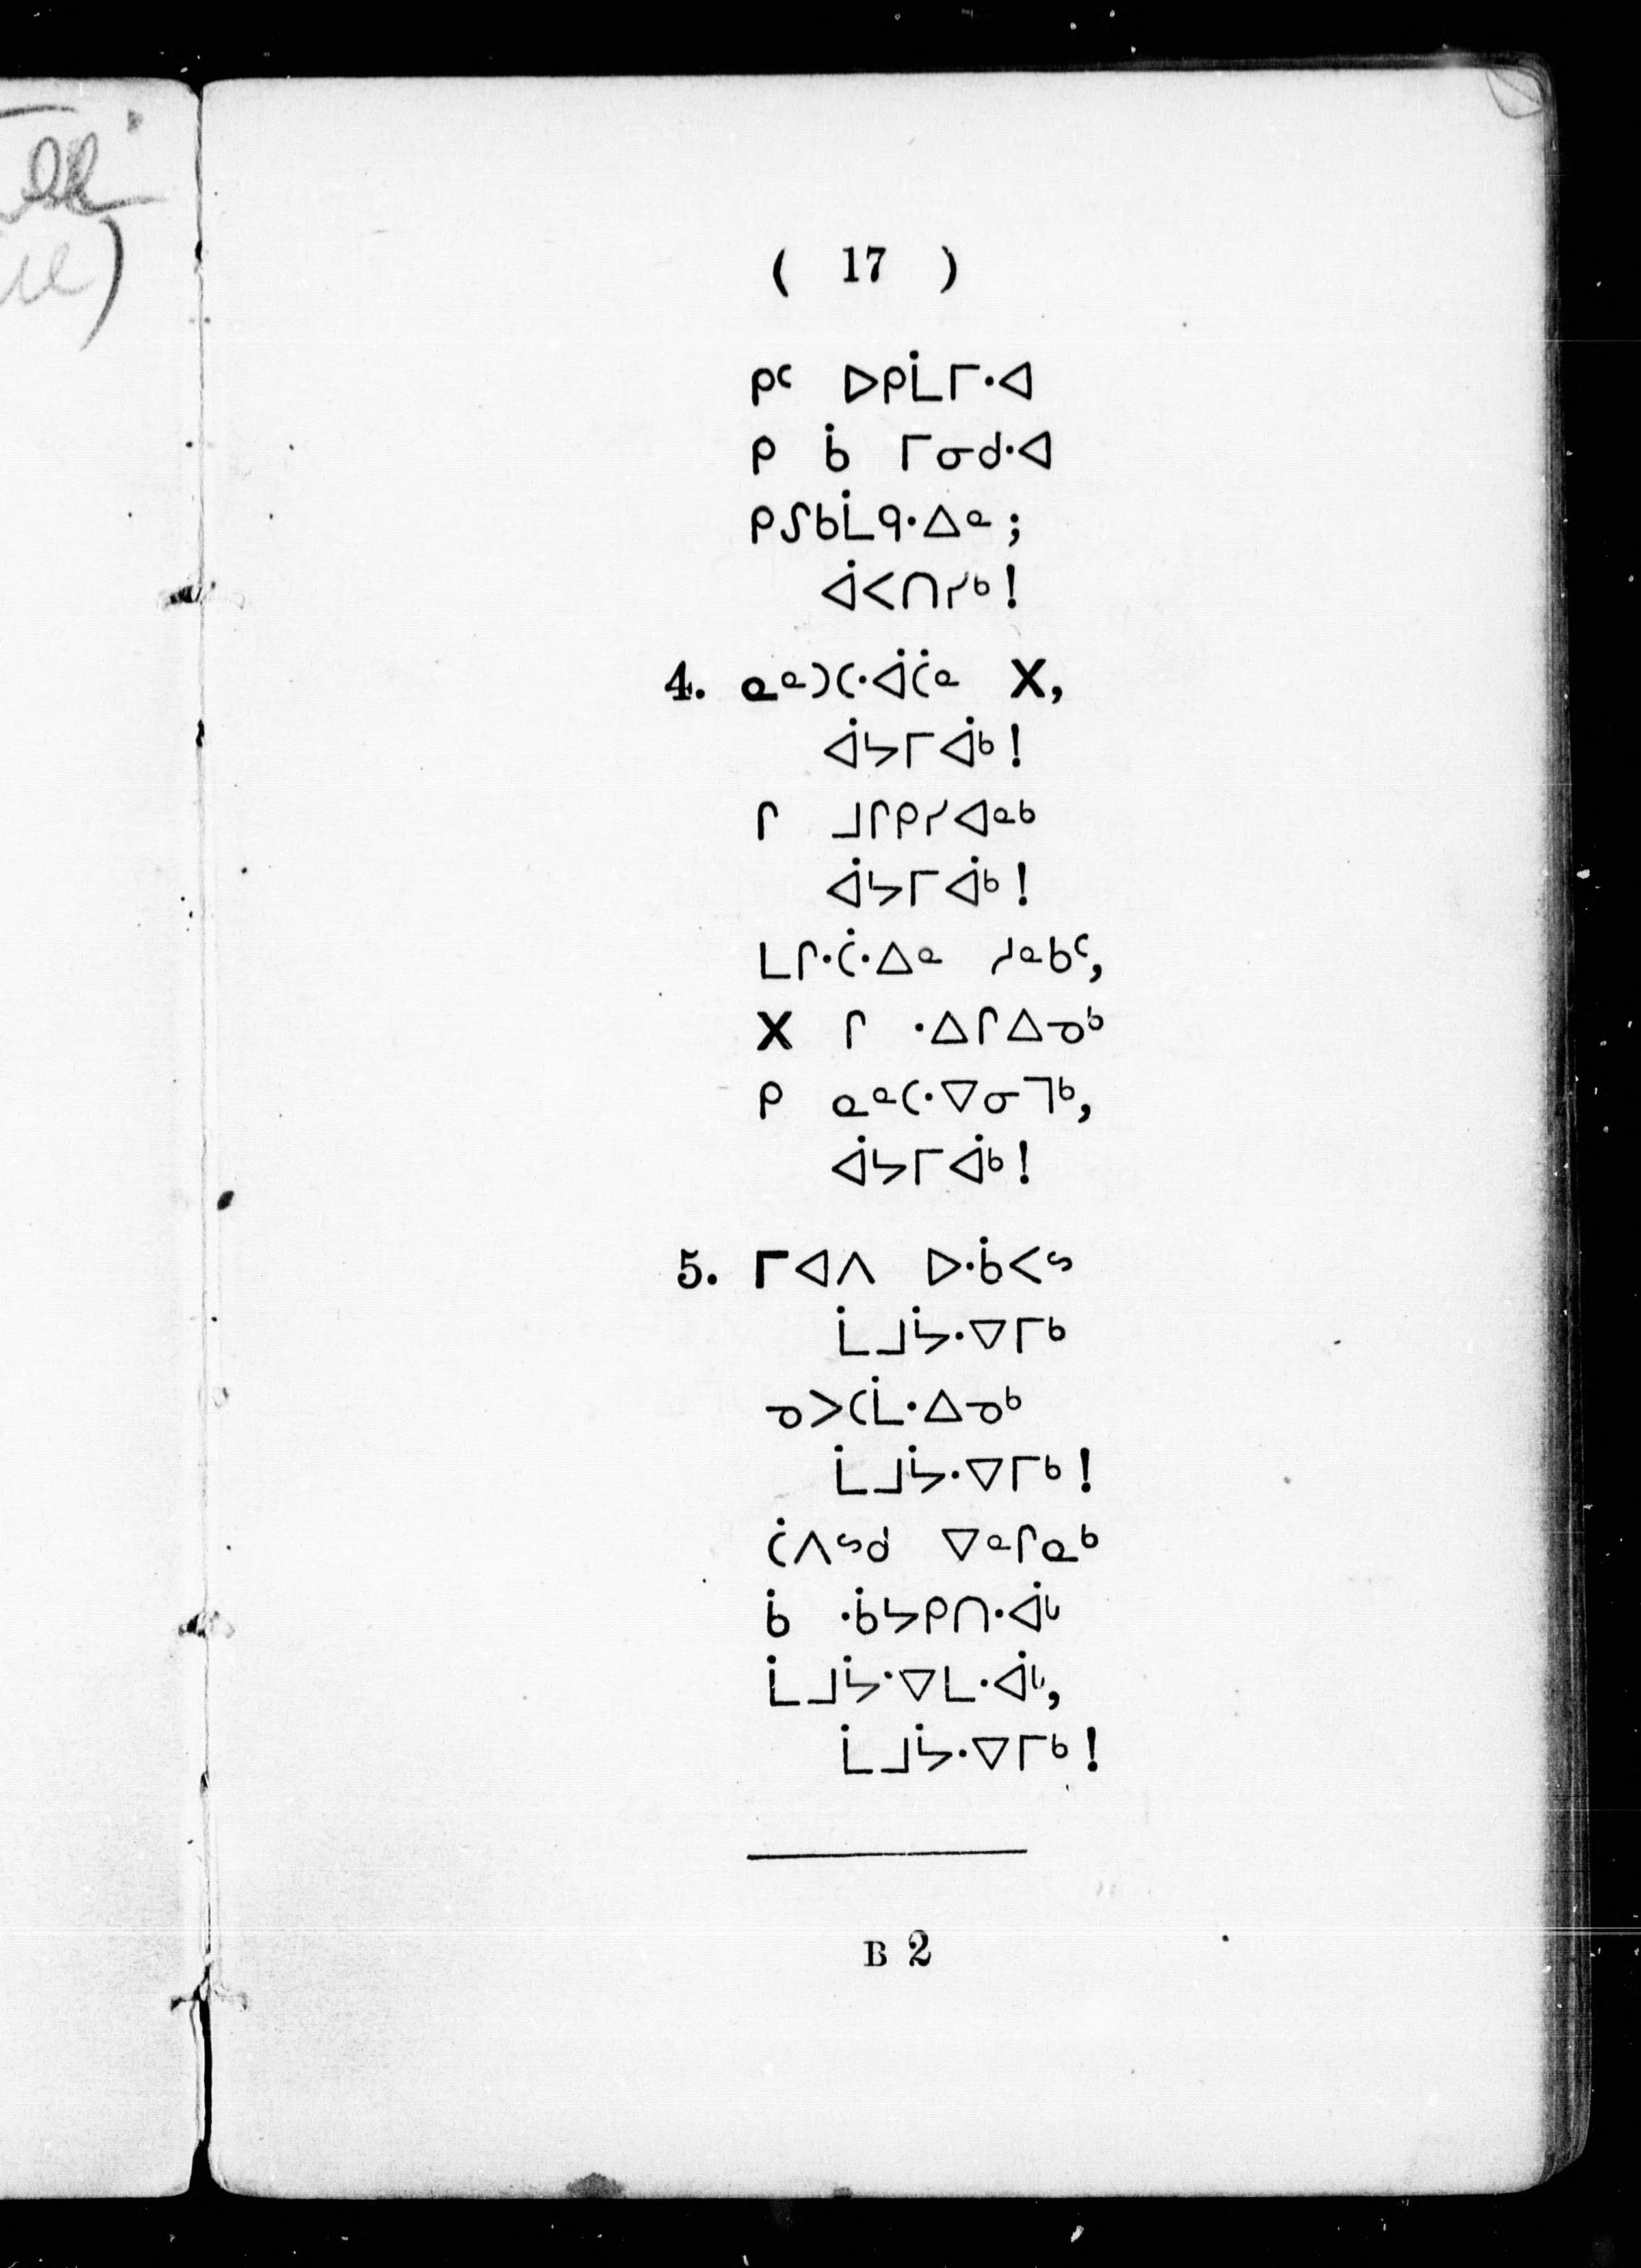 ( 17 )
ᑭᑦ ᐅᑭᒫᒥᐧᐊ
ᑭ ᑳ ᒥᓂᑯᐧᐊ
ᑭᔑᑲᒫᑫᐧᐃᓐ ;
ᐋᐸᑎᓯᒃ !
4. ᓇᓐᑐᑕᐧᐋᑖᓐ X,
ᐋᔭᒥᐋᒃ !
ᒋ ᒧᒋᑭᓯᐊᓐᒃ
ᐋᔭᒥᐋᒃ !
ᒪᒋᐧᑖᐧᐃᓐ ᓱᓐᑲᑦ,
X ᒋ ᐧᐃᒋᐃᓄᒃ
ᑭ ᓇᓐᑕᐧᐁᓂᒣᒃ,
ᐋᔭᒥᐋᒃ !
5. ᒥᐊᐱ ᐅᐧᑳᐸᔥ
ᒫᒧᔮᐧᐁᒥᒃ
ᓄᐳᑕᒫᐧᐃᓄᒃ
ᒫᒧᔮᐧᐁᒥᒃ !
ᑖᐱᔥᑯ ᐁᓐᒋᓇᒃ
ᑳ ᐧᑳᔭᑭᑎᐧᐋᒡ
ᒫᒧᔮᐧᐁᒪᐧᐋᒡ,
ᒫᒧᔮᐧᐁᒥᒃ !
B 2